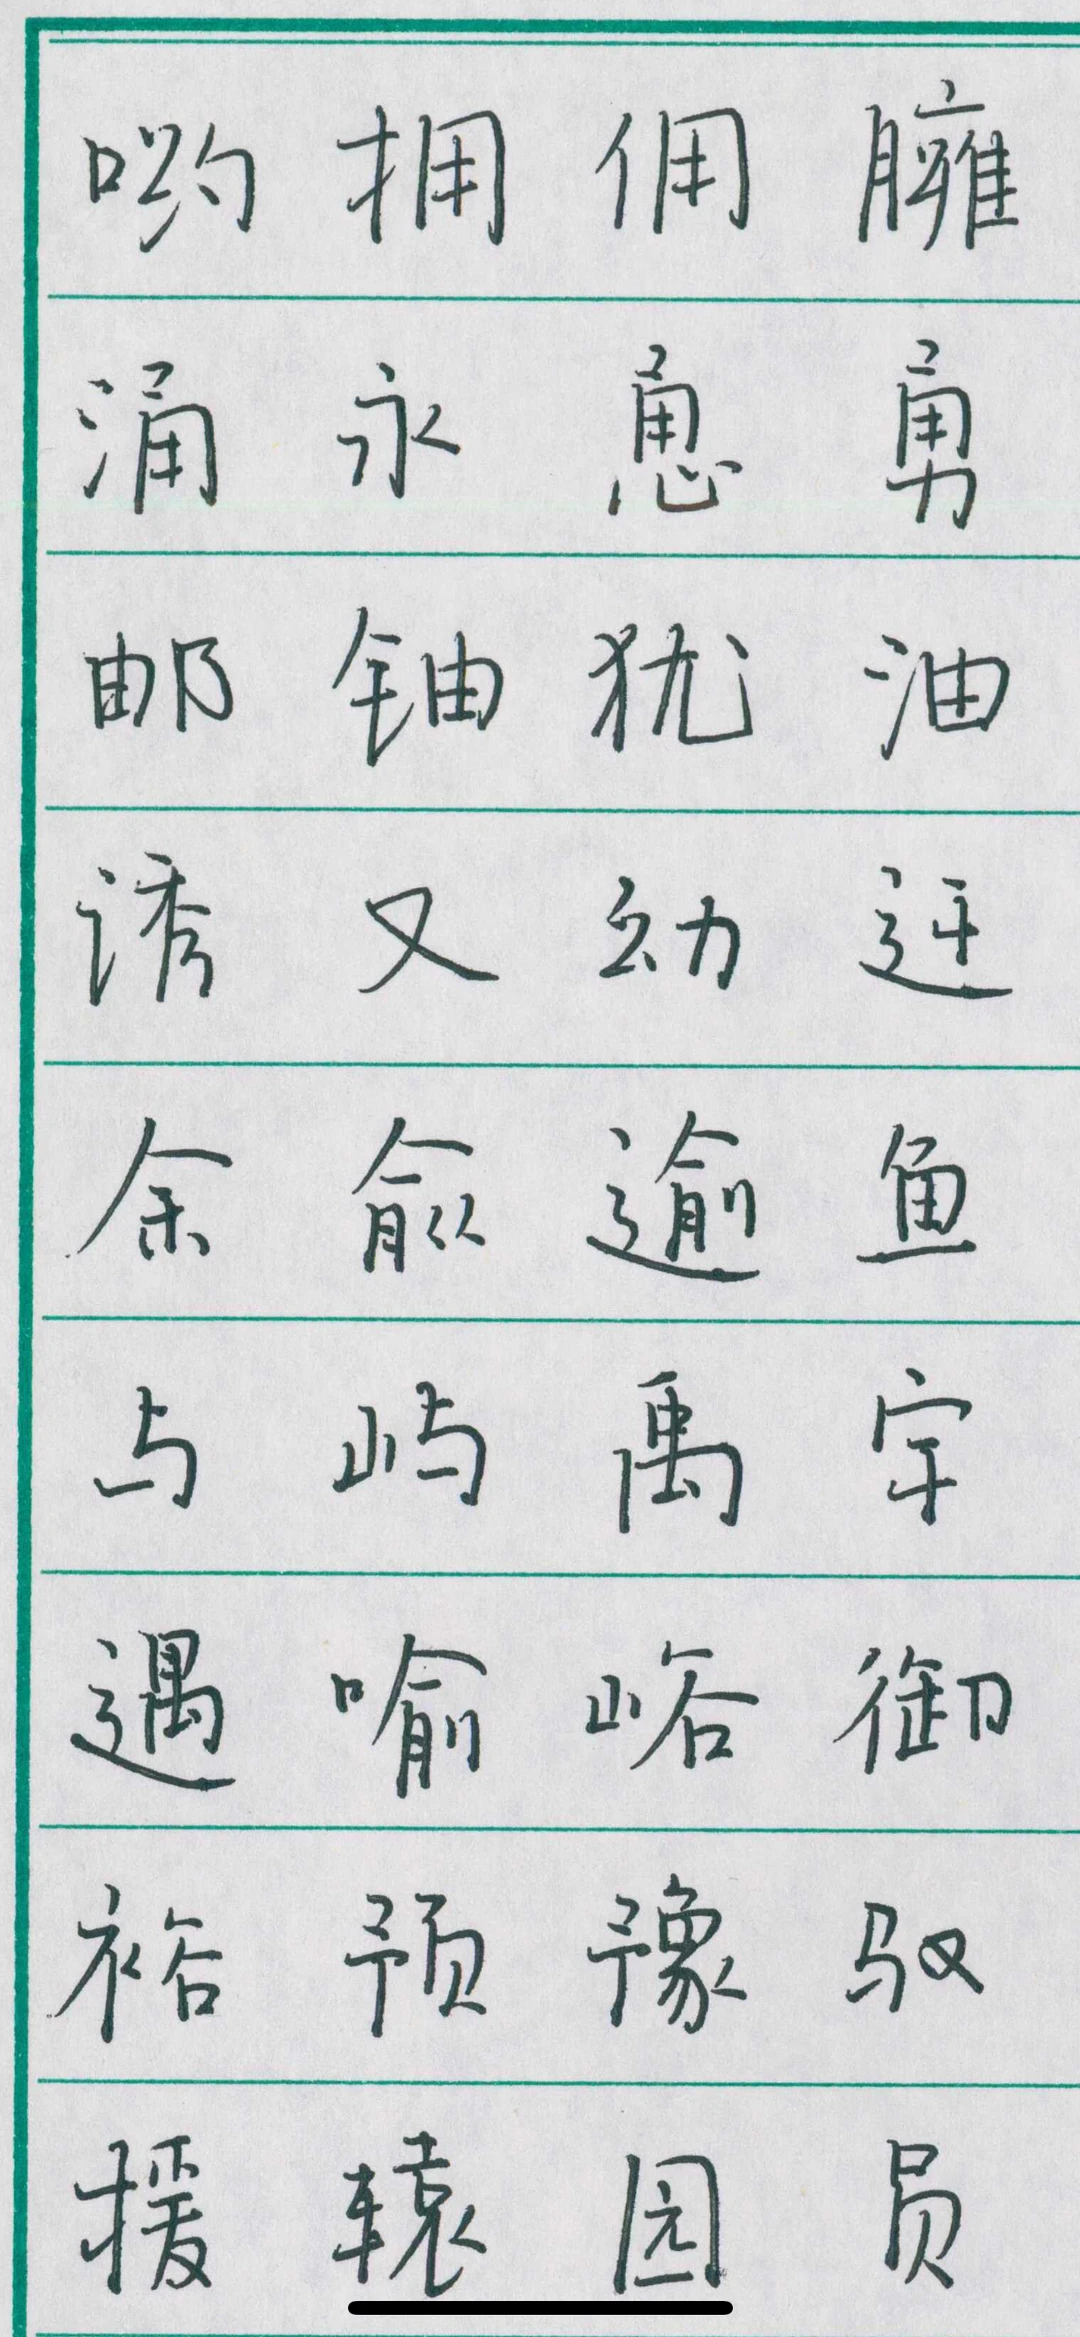 哟 拥 佣 臃
涌 永 恿 勇
邮 铀 犹 油
诱 又 幼 迂
余 俞 逾 鱼
与 屿 禹 宇
遇 喻 峪 御
裕 预 豫 驭
援 辕 园 员